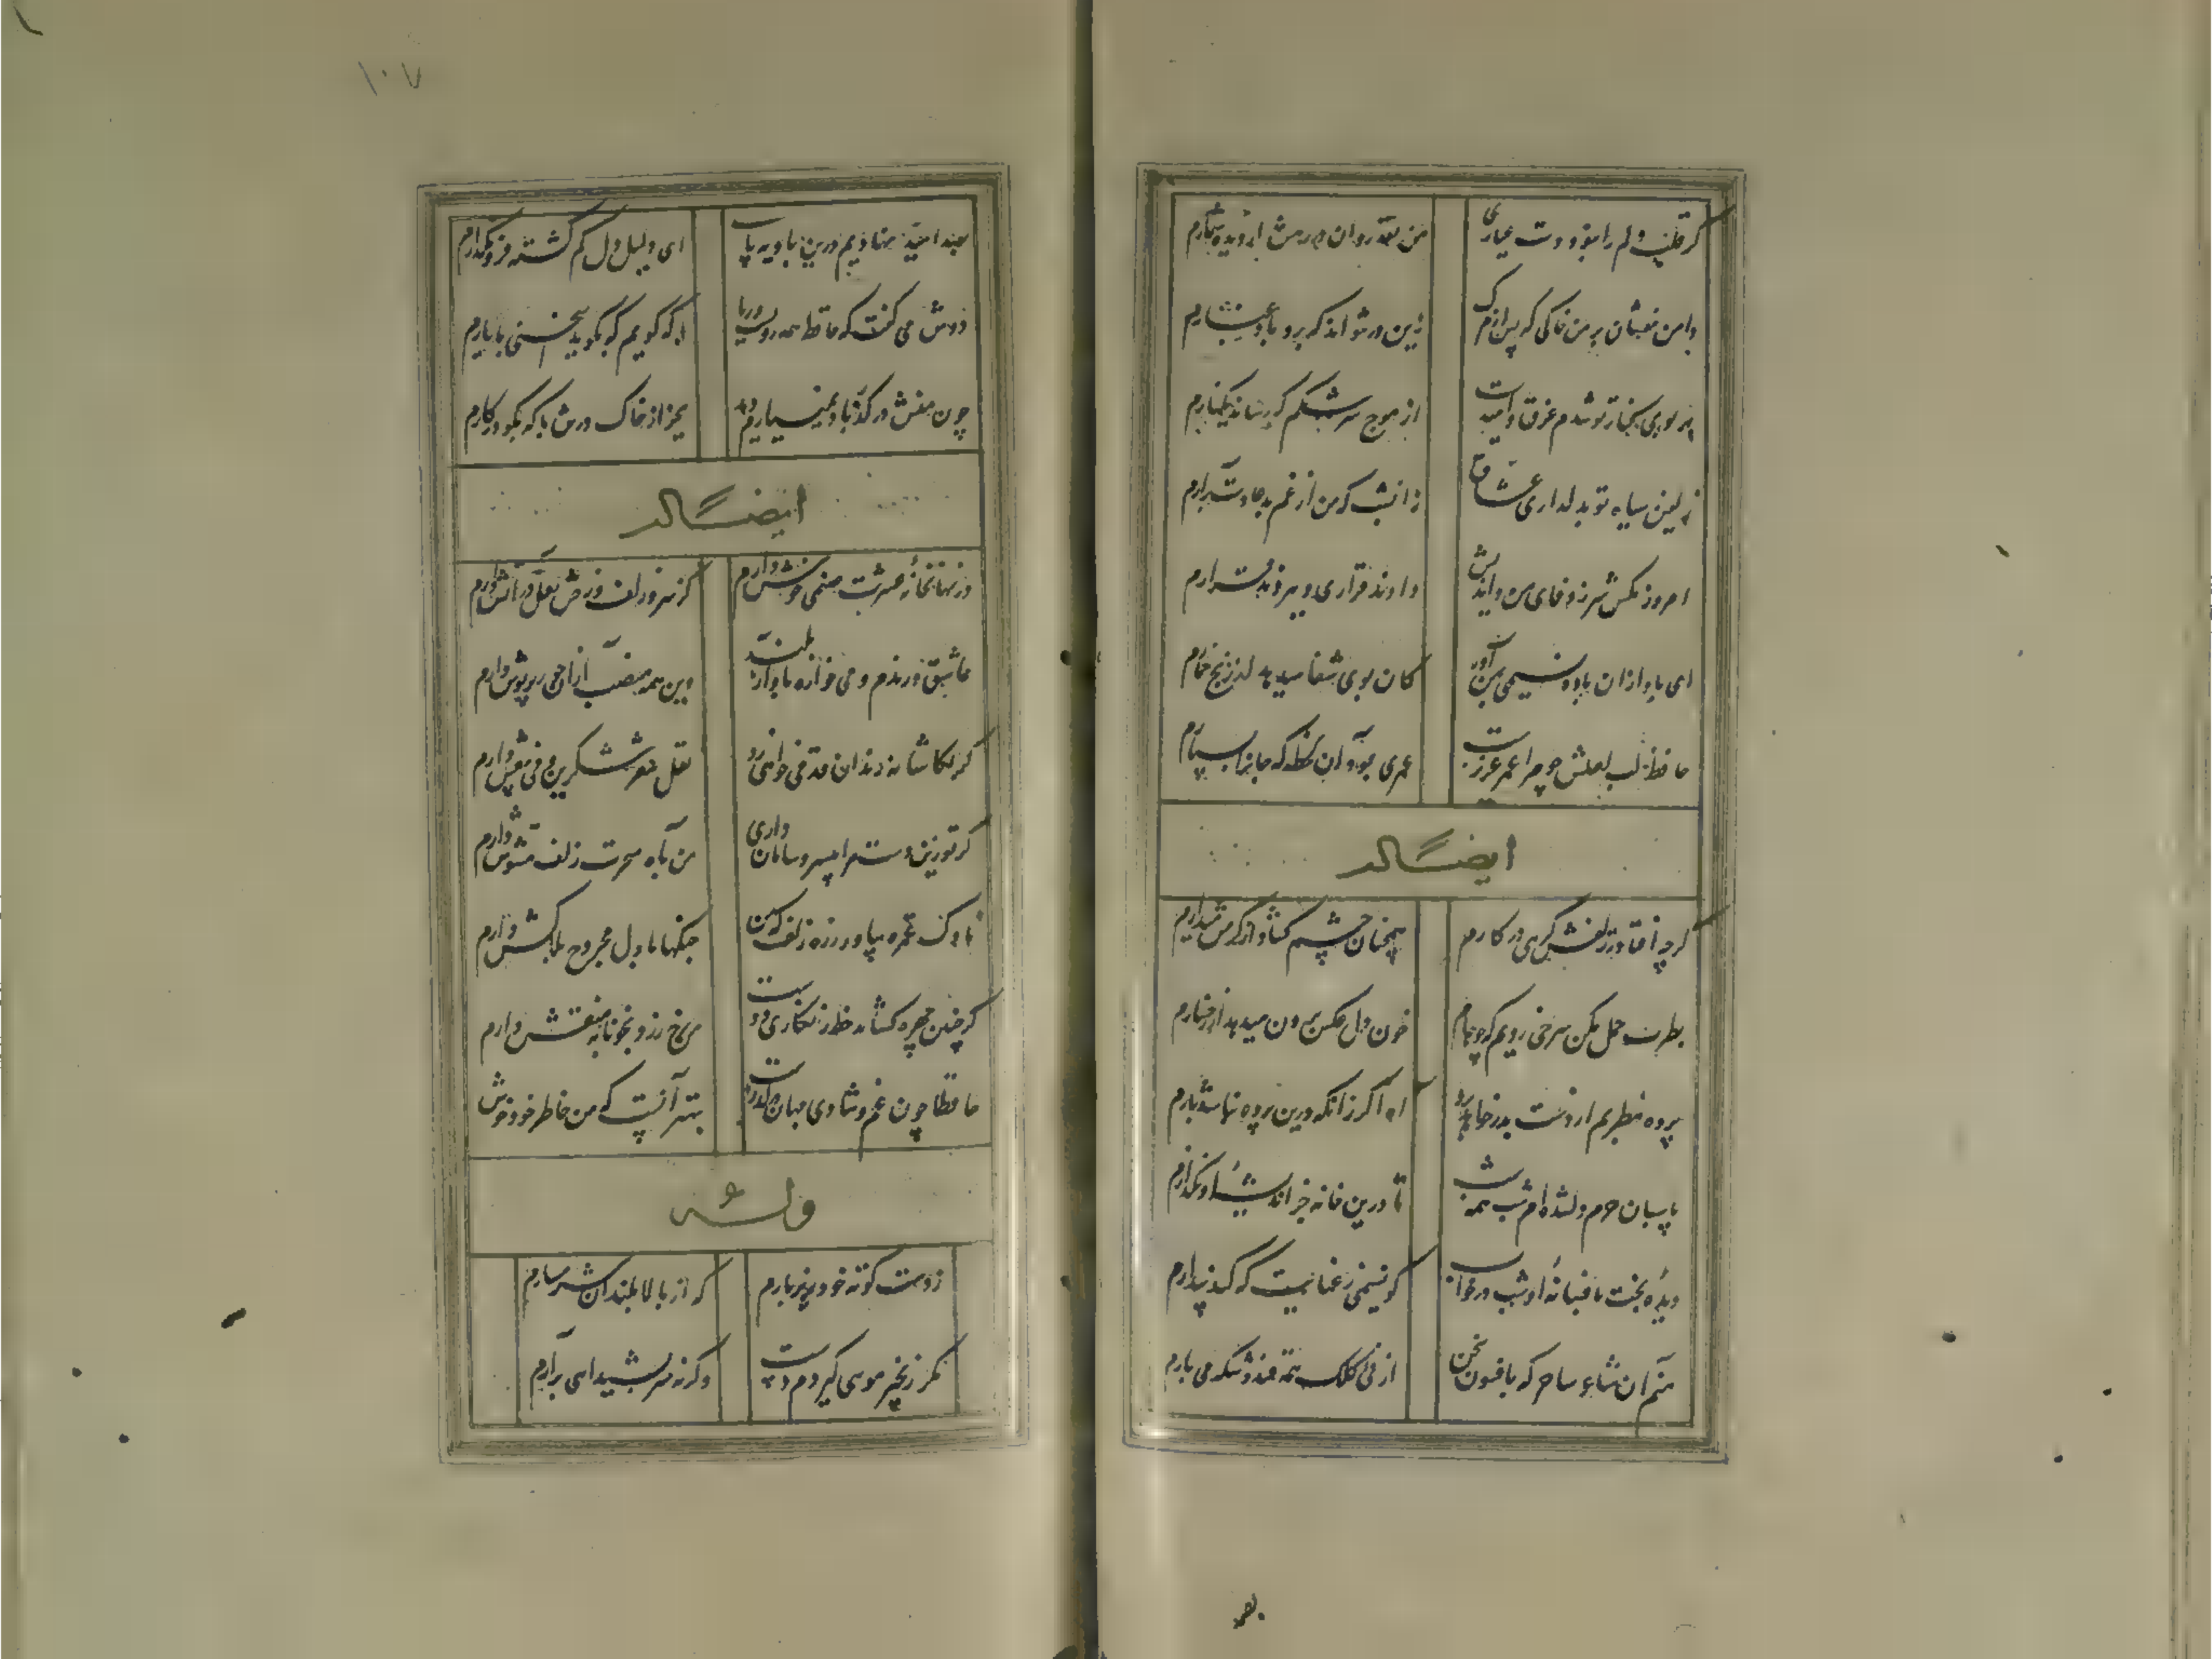 گر قلب دلم را ننهد دوست عیاری
من نقد روان در رهش از دیده شمارم
دامن مفشان بر من خاکی که پس از مرگ
زین در نتواند که برد باد غبارم
بر بوی کنار تو شدم غرق و امیدست
از موج سرشکم که رساند بکنارم
زلفین سیاه تو بدلداری عشاق
دادند قراری و ببردند قرارم
امروز مکش سر ز وفای من و اندیش
زان شب که من از غم بدعا دست برآرم
ای باد از آن باده نسیمی بمن آور
کان بوی شفا میدهد از رنج خمارم
حافظ لب لعلش چو مرا عمر عزیزست
عمری بود آن لحظه که جانرا بسپارم
ایضاً له
گرچه افتاد ز زلفش گرهی در کارم
همچنان چشم گشاد از کرمش میدارم
بطرب حمل مکن سرخی رویم که چو جام
خون دل عکس برون میدهد از رخسارم
پرده مطربم از دست بدر خواهد برد
آه اگر زانکه درین پرده نباشد بارم
پاسبان حرم دل شده ام شب همه شب
تا درین خانه جز اندیشه او نگذارم
دیده بخت بافسانه او شد در خواب
کو نسیمی ز عنایت که کند بیدارم
منم آن شاعر ساحر که بافسون سخن
از نی کلک همه قند و شکر می بارم
بصد
۱۰۷
بصد امید نهادیم درین بادیه پای
ای دلیل دل گم گشته فرو مگذارم
دوش می گفت که حافظ همه رویست و ریا
با که گویم که بگوید سخنی با یارم
چون منش در گذر باد نمی یارم دید
بجز از خاک درش با که بگو در کارم
ایضاً له
در نهانخانه عشرت صنمی خوش دارم
کز سر زلف و رخش نعل در آتش دارم
عاشق و رندم و می خواره بآواز بلند
وین همه منصب از آن حور پریوش دارم
گر بکاشانه رندان قدمی خواهی زد
نقل شعر شکرین و می بیغش دارم
گر تو زین دست مرا بی سر و سامان داری
من بآه سحرت زلف مشوش دارم
ناوک غمزه بیاور زره زلف که من
جنگها با دل مجروح بلاکش دارم
گر چنین چهره گشاید خط زنگاری دوست
من رخ زرد بخونابه منقش دارم
حافظا چون غم و شادی جهان در گذرست
بهتر آنست که من خاطر خود خوش
وله
ز دست کوته خود زیر بارم
که از بالا بلندان شرمسارم
مگر زنجیر مویی گیردم دست
وگرنه سر بشیدایی برآرم